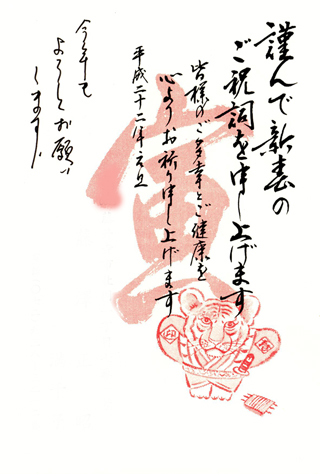 謹んで新春の
ご祝詞を申し上げます
皆様のご多幸とご健康を
心よりお祈り申し上げます
平成二十二年元旦
寅
今年も
よろしくお願い
します